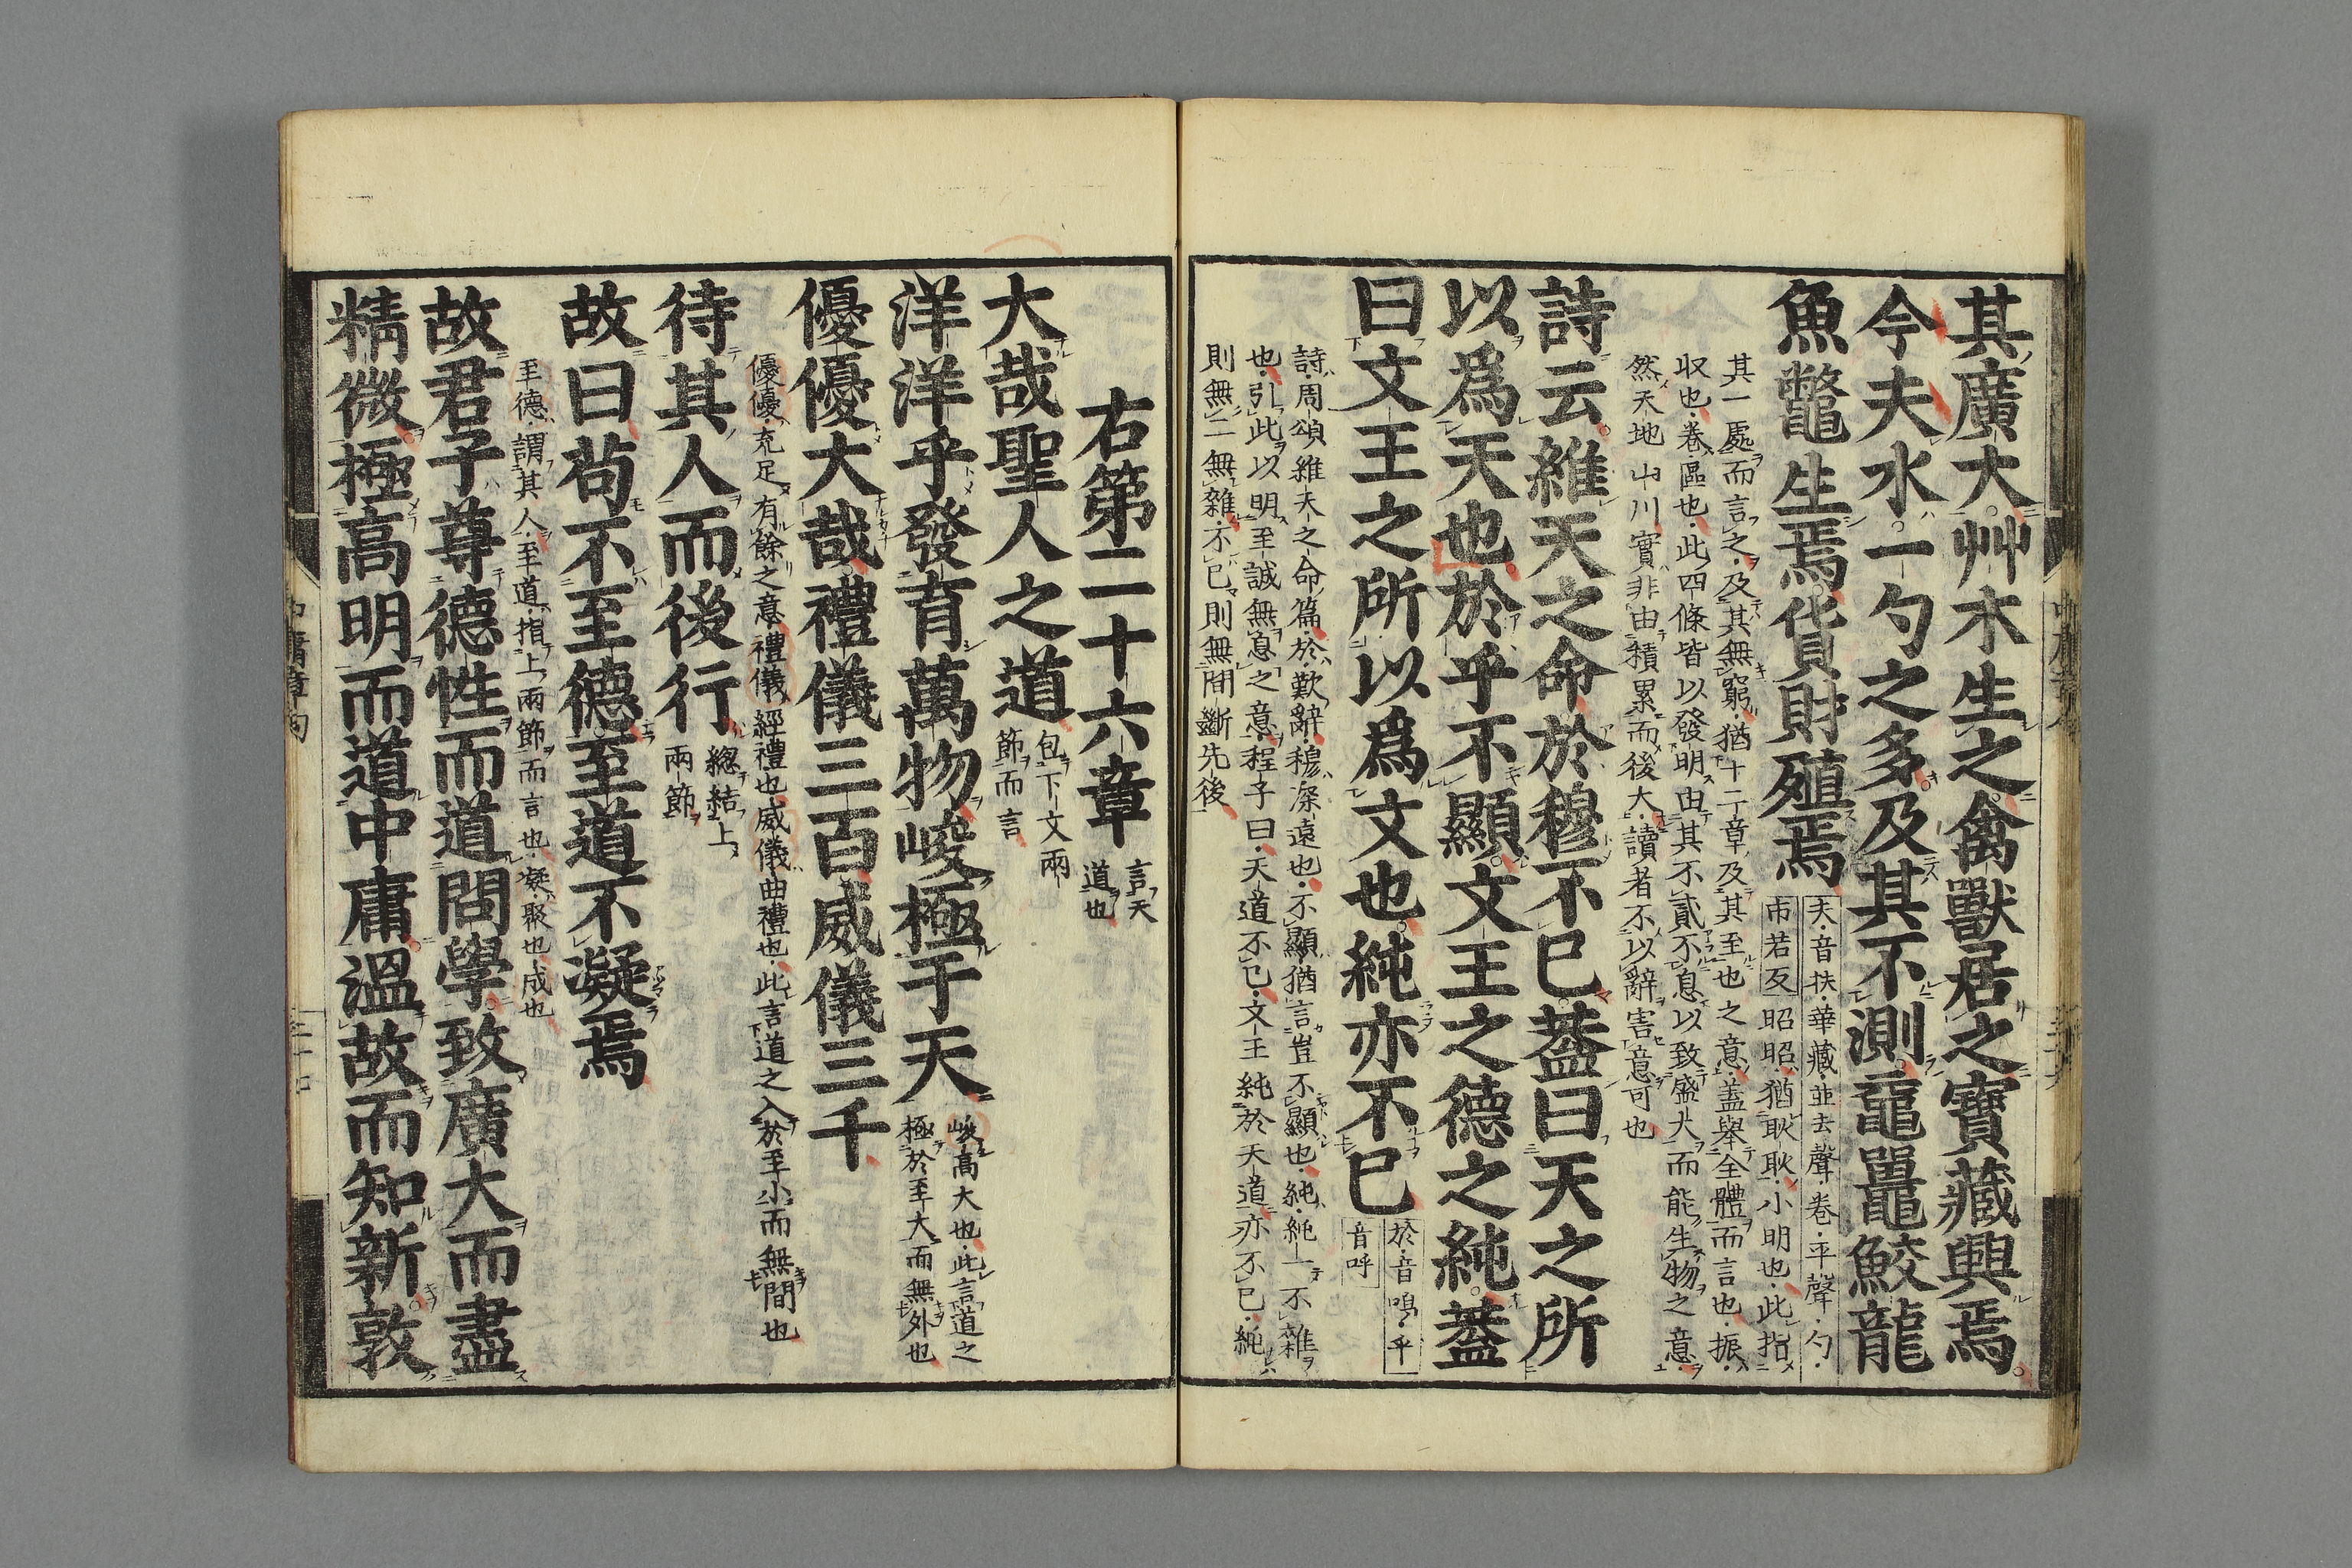 其廣大艸木生之禽獸居之寶藏興焉
今夫水一勺之多及其不測黿鼉鮫龍
魚鼈生焉貨財殖焉
夫音扶華藏並去聲卷平聲勺
市若反昭昭猶耿耿小明也此指
其一處而言之及其無窮猶十二章及其至也之意蓋舉全體而言也振
収也卷區也此四條皆以發明由其不貳不息以致盛大而能生物之意
然天地山川實非由積累而後大讀者不以辭害意可也
詩云維天之命於穆不已葢曰天之所
以爲天也於乎不顯文王之德之純葢
曰文王之所以爲文也純亦不已
於音嗚乎
音呼
詩周頌維天之命篇於歎辭穆深遠也不顯猶言豈不顯也純純一不雜
也引此以明至誠無息之意程子曰天道不已文王純於天道亦不已純
則無二無雜不已則無間斷先後
右第二十六章
言天
道也
大哉聖人之道
包下文兩
節而言
洋洋乎發育萬物峻極于天
峻高大也此言道之
極於至大而無外也
優優大哉禮儀三百威儀三千
優優充足有餘之意禮儀經禮也威儀曲禮也此言道之入於至小而無間也
待其人而後行
總結上
兩節
故曰苟不至德至道不凝焉
至德謂其人至道指上兩節而言也凝聚也成也
故君子尊德性而道問學致廣大而盡
精微極高明而道中庸溫故而知新敦
中庸章句